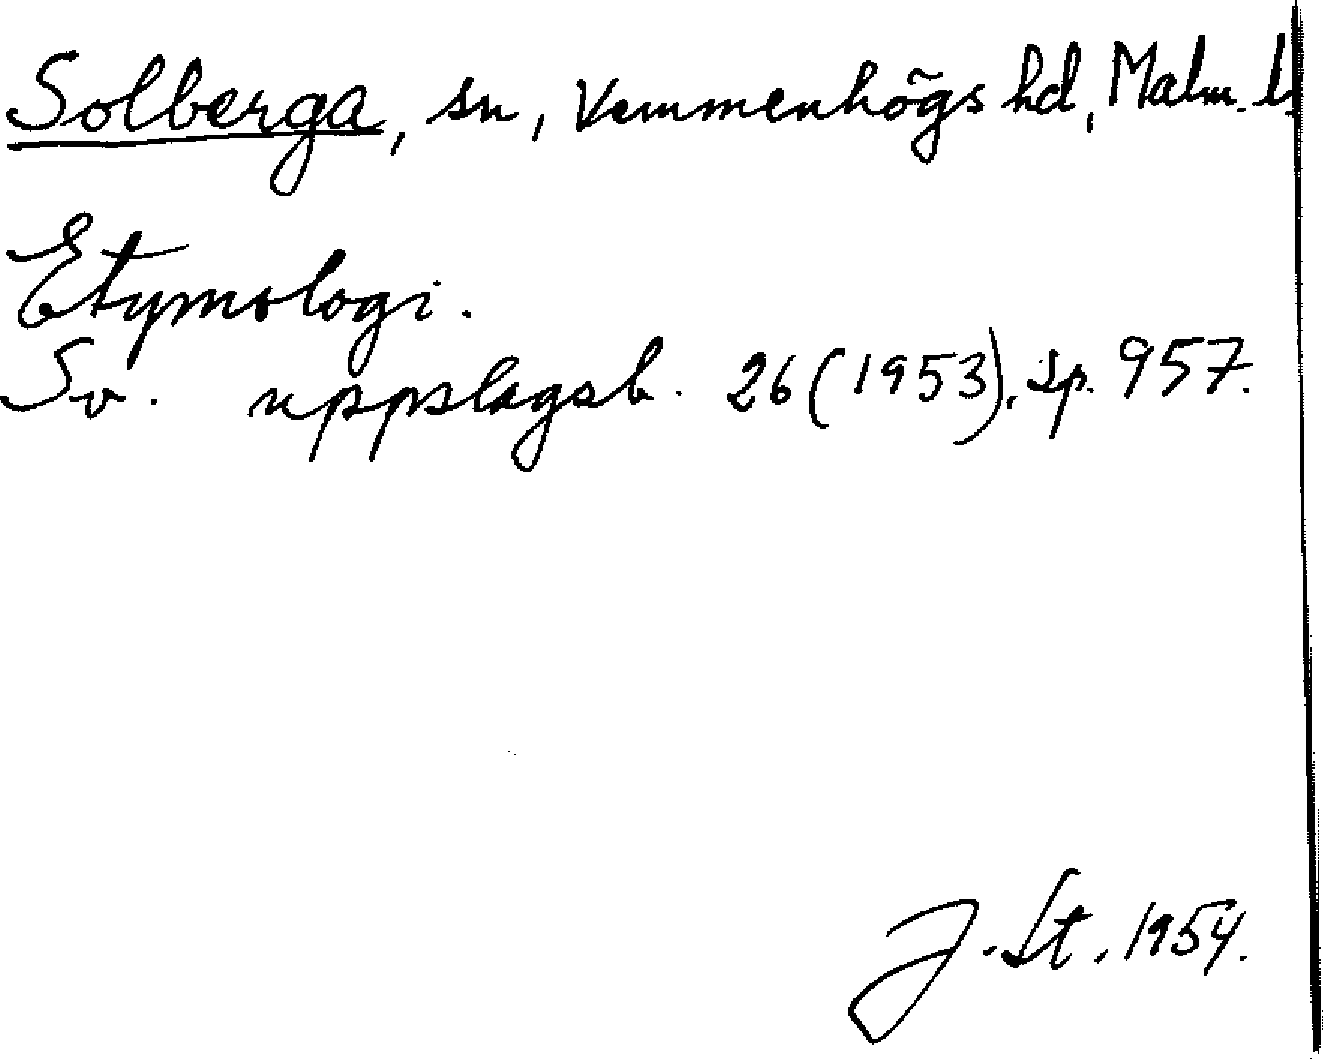 Solberga, sn, Vemmenhögs hd, Malm. l
Etymologi.
Sv. uppslagsb. 26 (1953), sp. 957.
J. St. 1954.